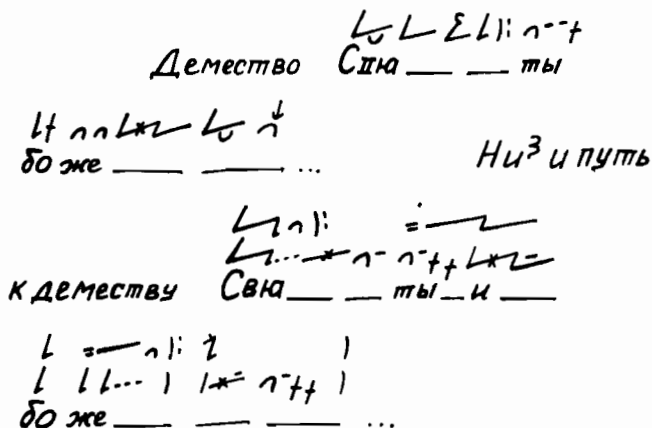 Демество Спю ___ __ ты
бо же ____ ____ ...
Ни³ и путь
к деместву Свю ___ __ ты _ и ___
бо же ____ ___ ____ ...